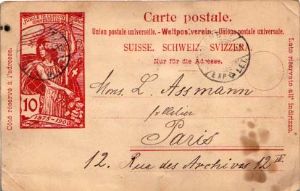 Carte postale.
Union postale universelle. - Weltpostverein. - Unione postale universale.
SUISSE. SCHWEIZ. SVIZZERA.
Nur für die Adresse.
Côté réservé à l'adresse.
Lato riservato all'indirizzo.
10
1875-1900
LEIPZIG
Mons. L. Assmann
pelletier
Paris
12. Rue des Archives 12